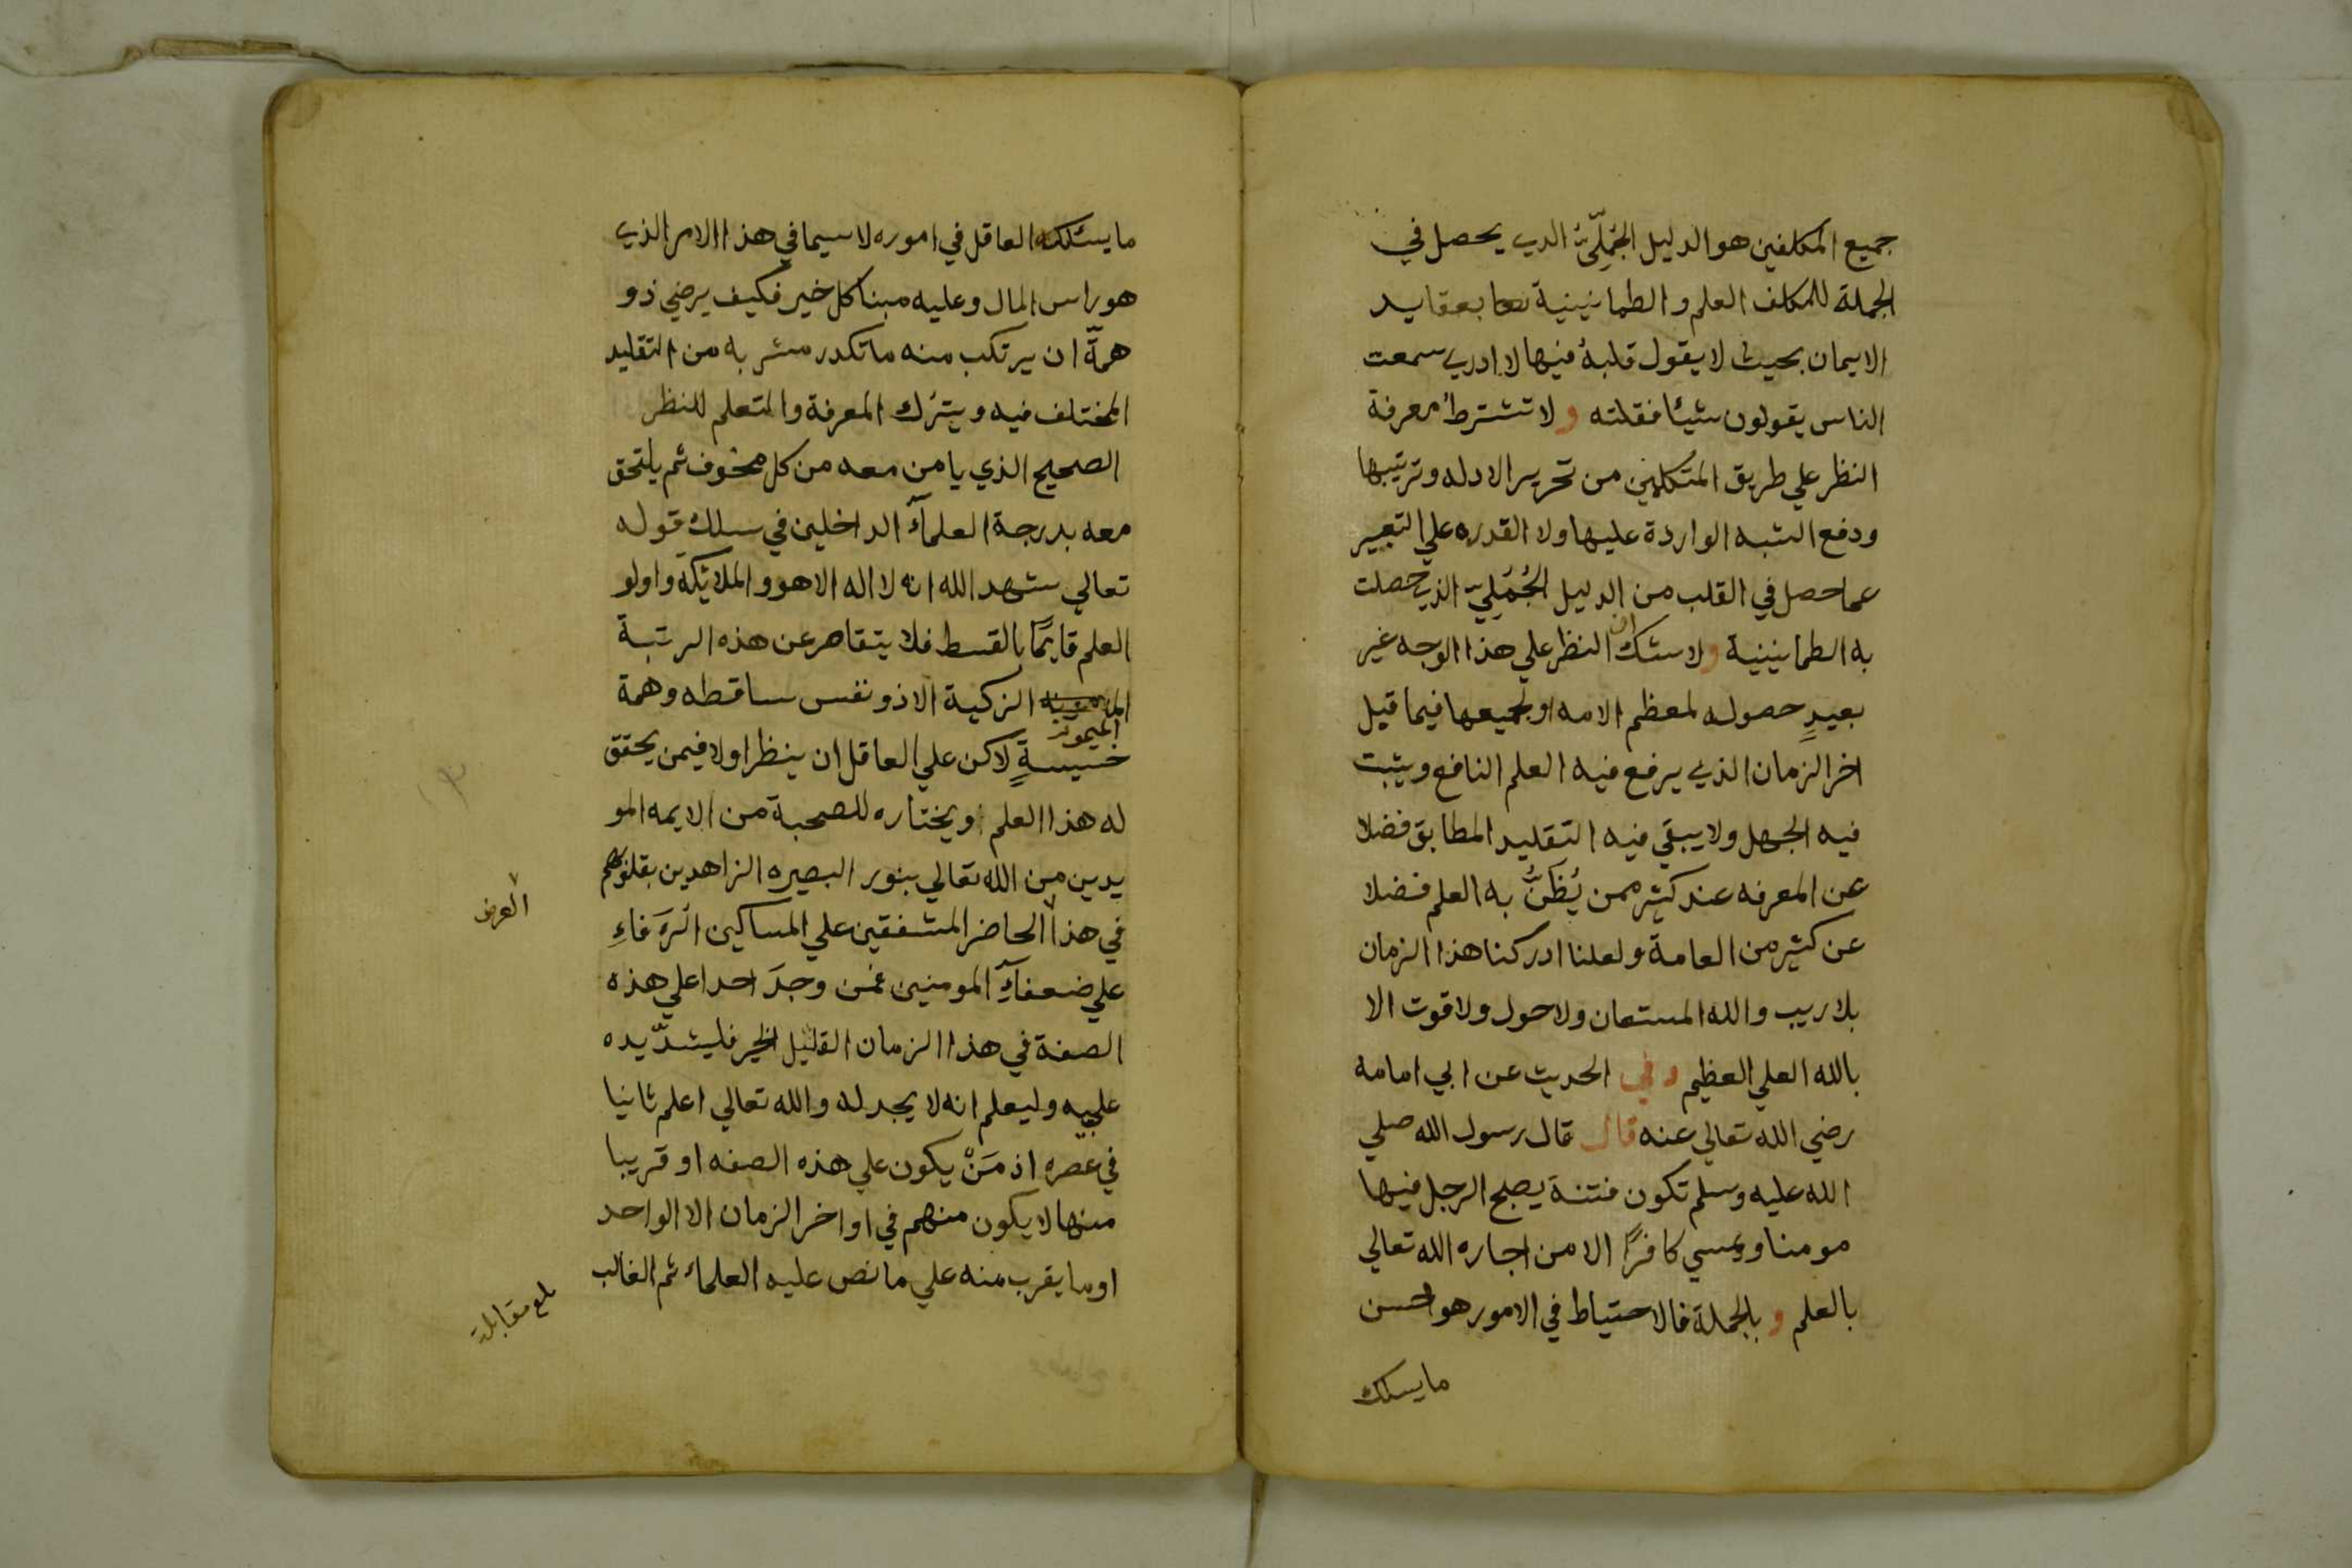 جميع المكلفين هو الدليل الجُمَلِيُّ الدي يحصل في
الجملة للمكلف العلم والطمانينية بعقايد
الايمان بحيث لا يقول قلبهُ فيها لا ادري سمعت
الناس يقولون شيئا فقلته ولا تشترط معرفة
النظر علي طريق المتكلمين من تحرير الادله وترتيبها
ودفع الشبه الواردة عليها ولا القدره علي التعبير
عما حصل في القلب من الدليل الجُمَلِيّ الذي حصلت
به الطمانينية ولا شك ان النظر علي هذا الوجه غير
بعيدٍ حصوله لمعظم الامه او لجميعها فيما قبل
اخر الزمان الذي يرفع فيه العلم النافع ويثبت
فيه الجهل ولا يبقي فيه التقليد المطابق فضلا
عن المعرفه عند كثير ممن يُظَنُّ به العلم فضلا
عن كثير من العامة ولعلنا ادركنا هذا الزمان
بلا ريب والله المستعان ولا حول ولا قوت الا
بالله العلي العظيم وفي الحديث عن ابي امامه
رضي الله تعالي عنه قال قال رسول الله صلي
الله عليه وسلم تكون فتنة يصبح الرجل فيها
مومنا ويمسي كافرًا الا من اجاره الله تعالي
بالعلم وبالجملة فالاحتياط في الامور هو احسن
ما يسلك
ما يسلكه العاقل في اموره لاسيما في هذا الامر الذي
هو راس المال وعليه مبنا كل خير فكيف يرضي ذو
همةّ ان يرتكب منه ما تكدر مشربه من التقليد
المختلف فيه ويترُك المعرفة والتعلم للنظر
الصحيح الذي يا من معه من كل مخوف ثم يلتحق
معه بدرجة العلمآء الداخلين في سلك قوله
تعالي شهد الله انه لا اله الا هو والملائيكة واولو
العلم قايمًا بالقسط فلا يتقاصر عن هذه الرتبة
الميمونه الزكية الا ذو نفس ساقطه وهمة
خسيسةٍ لاكن علي العاقل ان ينظر اولا فيمن يحقق
له هذا العلم ويختاره للصحبة من الايمه المو
يدين من الله تعالي بنور البصيره الزاهدين بقلوبهم
في هذا الحاضر المشفقين علي المساكين الرَءَفاءِ
العرض
علي ضعفآءِ المومنين فمن وجدَ احدا علي هذه
الصفة في هذا الزمان القليل الخير فليشدّ يده
عليه وليعلم انه لا يجد له والله تعالي اعلم ثانيا
في عصره اذ مَنْ يكون علي هذه الصفه او قريبا
منها لا يكون منهم في اواخر الزمان الا الواحد
او ما يقرب منه علي ما نص عليه العلماء ثم الغالب
بلغ مقابلة